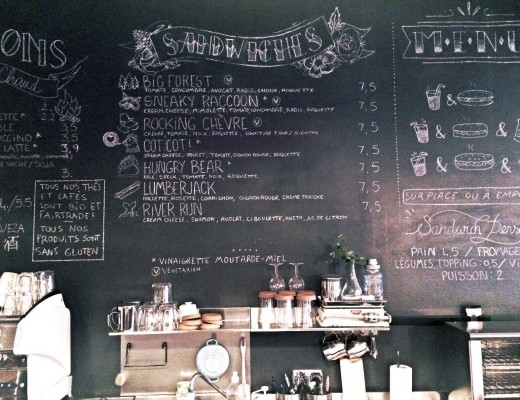 SANDWICHES
BIG FOREST V 7,5
TOMATE, CONCOMBRE, AVOCAT, RADIS, CHOUX, ROQUETTE
SNEAKY RACCOON * V 7,5
CREAM CHEESE, MIMOLETTE, TOMATE, CONCOMBRE, RADIS, ROQUETTE
ROCKING CHÈVRE V 7,5
CHÈVRE, TOMATE, NOIX, ROQUETTE, CONFITURE D'OIGNONS
COT COT! * 7,5
CREAM CHEESE, POULET, TOMATE, OIGNON ROUGE, ROQUETTE
HUNGRY BEAR * 7,5
STECK, TOMATE, NOIX, ROQUETTE
LUMBERJACK 7,5
RACLETTE, ROSETTE, CORNICHON, OIGNON ROUGE, CRÈME FRAÎCHE
RIVER RUN 7,5
CREAM CHEESE, SAUMON, AVOCAT, CIBOULETTE, ANETH, JUS DE CITRON
* VINAIGRETTE MOUTARDE-MIEL
V VÉGÉTARIEN
ONS
Chaud
3,5
3,5
LATTE * 3,9
VACHE/SOJA
3.
TOUS NOS THÉS
ET CAFÉS
SONT BIO ET
FAIRTRADE!
TOUS NOS
PRODUITS SONT
SANS GLUTEN
4./5.5
酒
MENU
&
&
&
SUR PLACE OU À EMP
Sandwich Pers
PAIN 4,5 / FROMAGE
LÉGUMES, TOPPING: 0,5 / VI
POISSON: 2